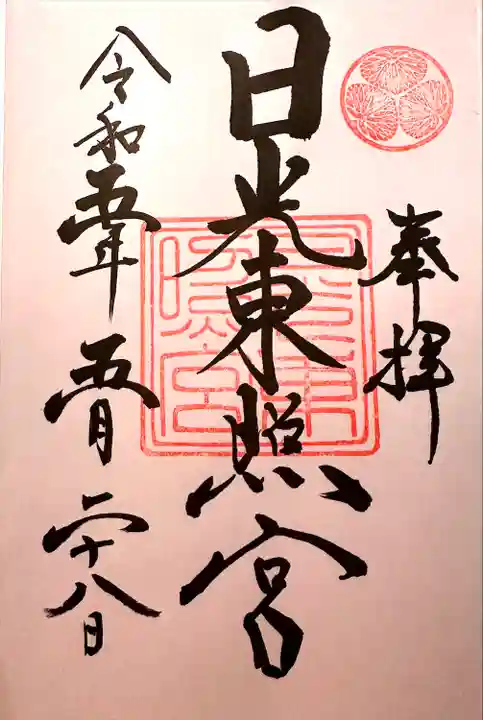 奉拝
日光東照宮
令和五年五月二十八日